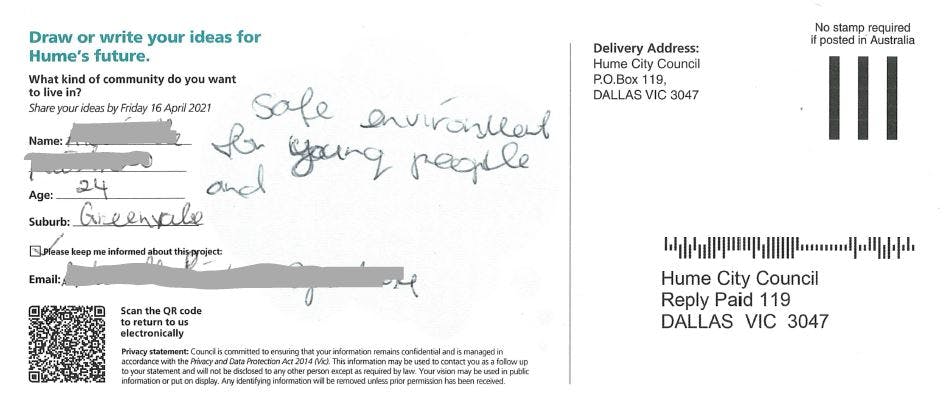 Draw or write your ideas for
Hume's future.
What kind of community do you want
to live in?
Share your ideas by Friday 16 April 2021
Name:
Age: 24
Suburb: Greenvale
Please keep me informed about this project:
Email:
safe environment
for young people
and
Scan the QR code
to return to us
electronically
Privacy statement: Council is committed to ensuring that your information remains confidential and is managed in
accordance with the Privacy and Data Protection Act 2014 (Vic). This information may be used to contact you as a follow up
to your statement and will not be disclosed to any other person except as required by law. Your vision may be used in public
information or put on display. Any identifying information will be removed unless prior permission has been received.
Delivery Address:
Hume City Council
P.O.Box 119,
DALLAS VIC 3047
No stamp required
if posted in Australia
Hume City Council
Reply Paid 119
DALLAS VIC 3047